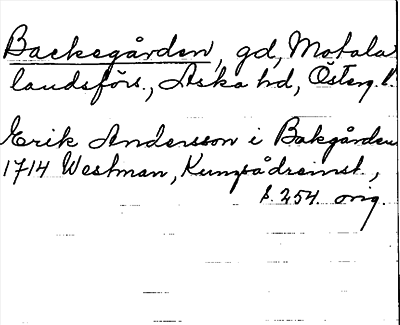 Backegården, gd, Motala
landsförs., Aska hd, Österg. l.
Erik Andersson i Bakgården
1714 Westman, Kungsådreinst.,
s. 254 orig.